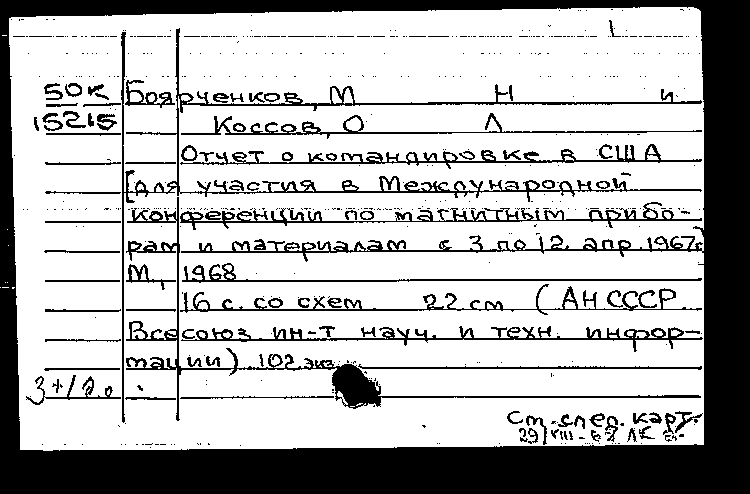 1
50К Боярченков, М Н и
15215 Коссов, О Л
Отчет о командировке в США
[для участия в Международной
конференции по магнитным прибо-
рам и материалам с 3 по 12. апр. 1967г.]
М., 1968
16 с. со схем 22 см (АН СССР
Всесоюз. ин-т науч. и техн. инфор-
мации) 102 экз
См. след. карт.